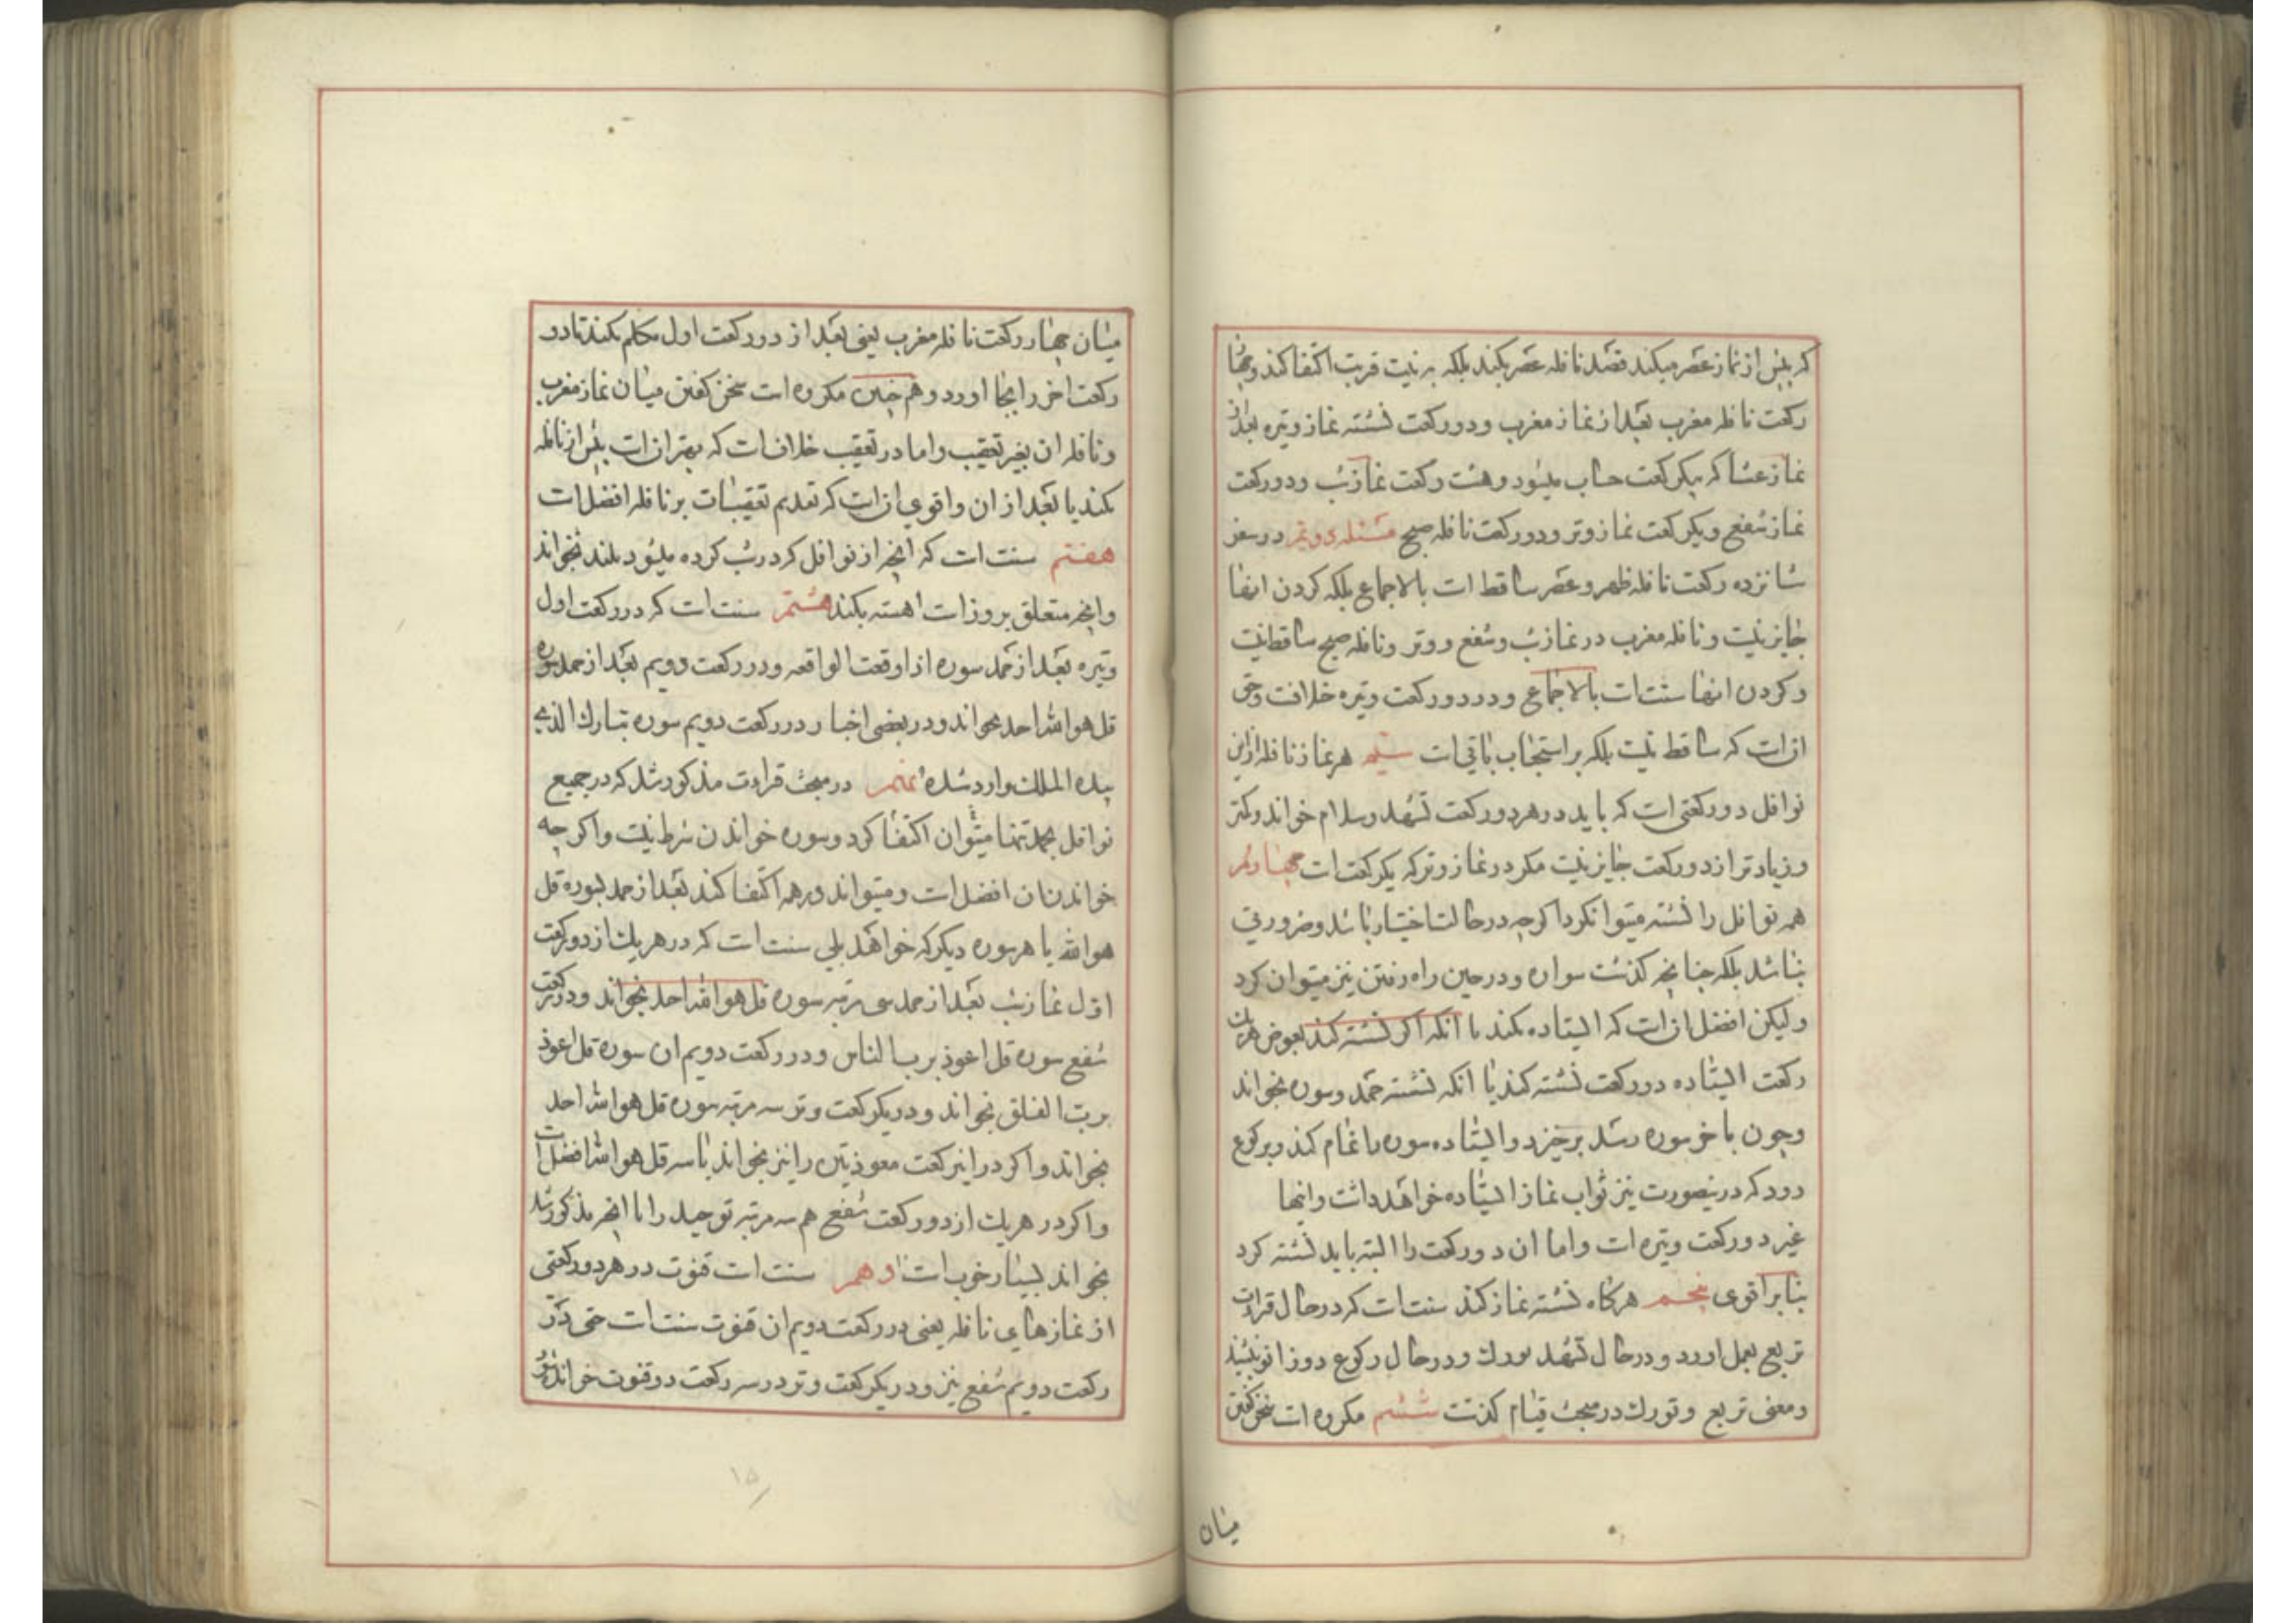 که پیش از نماز عصر میکند قصد نافله عصر بکند بلکه به نیت قربت اکتفا کند وچهار
رکعت نافله مغرب بعد از نماز مغرب ودو رکعت نشسته نماز وتیره بعد از
نماز عشا که بیکرکعت حساب میشود وهشت رکعت نماز شب ودو رکعت
نماز شفع ویکرکعت نماز وتر ودو رکعت نافله صبح مسئله دویم در سفر
شانزده رکعت نافله ظهر وعصر ساقط است بالاجماع بلکه کردن انها
جایز نیست ونافله مغرب در نماز شب وشفع ووتر ونافله صبح ساقط نیست
وکردن انها سنت است بالاجماع ودر دو رکعت وتیره خلافست وحق
ان است که ساقط نیست بلکه بر استحباب باقی است سیم هر نماز نافله از این
نوافل دو رکعتی است که باید در هر دو رکعت تشهد وسلام خواند وکمتر
وزیادتر از دو رکعت جایز نیست مکر در نماز وتر که یکرکعت است چهارم
همه نوافل را نشسته میتوانکرد اکرچه در حالت اختیار باشد وضرورتی
نباشد بلکه چنانچه کذشت سواره ودر حین راه رفتن نیز میتوان کرد
ولیکن افضل ان است که ایستاده بکند یا انکه اکر نشسته کند بعوض هر یک
رکعت ایستاده دو رکعت نشسته کند یا انکه نشسته حمد وسوره بخواند
وچون باخر سوره رسد برخیزد وایستاده سوره را تمام کند وبرکوع
رود که درینصورت نیز ثواب نماز ایستاده خواهد داشت واینها
غیر دو رکعت وتیره است واما ان دو رکعت را البته باید نشسته کرد
بنابر اقوی پنجم هرکاه نشسته نماز کند سنت است که در حال قرائت
تربع بعمل اورد ودر حال تشهد تورک ودر حال رکوع دو زانو بنشیند
ومعنی تربع وتورک در مبحث قیام کذشت ششم مکروه است سخن کفتن
میان
میان چهار رکعت نافله مغرب یعنی بعد از دو رکعت اول تکلم نکند تا دو
رکعت اخر را بجا اورد وهم چنین مکروه است سخن کفتن میان نماز مغرب
ونافله ان بغیر تعقیب واما در تعقیب خلاف است که بهتر ان است پیش از نافله
بکند یا بعد از ان واقوی ان است که تقدیم تعقیبات بر نافله افضل است
هفتم سنت است که انچه از نوافل که در شب کرده میشود بلند بخواند
وانچه متعلق بروز است اهسته بکند هشتم سنت است که در رکعت اول
وتیره بعد از حمد سوره اذا وقعت الواقعه ودر رکعت دویم بعد از حمد سوره
قل هو الله احد بخواند ودر بعضی اخبار در رکعت دویم سوره تبارک الذی
بیده الملک وارد شده نهم در مبحث قراءت مذکور شد که در جمیع
نوافل بحمد تنها میتوان اکتفا کرد وسوره خواندن شرط نیست واکرچه
خواندن ان افضل است ومیتواند در همه اکتفا کند بعد از حمد بسوره قل
هو الله یا هر سوره دیکر که خواهد بلی سنت است که در هر یک از دو رکعت
اول نماز شب بعد از حمد سی مرتبه سوره قل هو الله احد بخواند ودر رکعت
شفع سوره قل اعوذ برب الناس ودر رکعت دویم ان سوره قل اعوذ
برب الفلق بخواند ودر یکرکعت وتر سه مرتبه سوره قل هو الله احد
بخواند واکر در اینرکعت معوذتین را نیز بخواند با سه قل هو الله افضل است
واکر در هر یک از دو رکعت شفع هم سه مرتبه توحید را با انچه مذکور شد
بخواند بسیار خوب است دهم سنت است قنوت در هر دو رکعتی
از نمازهای نافله یعنی در رکعت دویم ان قنوت سنت است حتی در
رکعت دویم شفع نیز ودر یکرکعت وتر در سه رکعت دو قنوت خوانده
۱۵